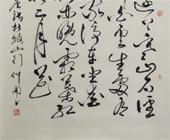 远上寒山石径
斜白云生處有
人家停车坐爱
枫林晚霜葉红
于二月花
杜牧山行